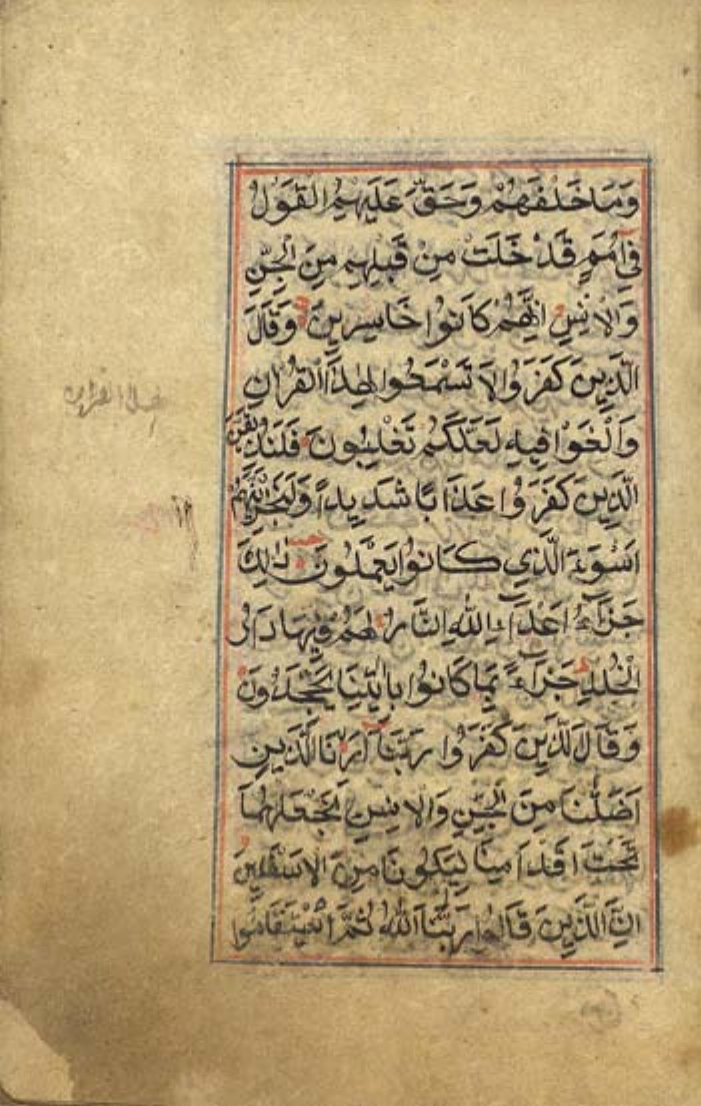 وَمَا خَلْفَهُمْ وَحَقَّ عَلَيْهِمُ الْقَوْلُ
فِي أُمَمٍ قَدْ خَلَتْ مِنْ قَبْلِهِمْ مِنَ الْجِنِّ
وَالْاِنْسِ اِنَّهُمْ كَانُوا خَاسِرِينَ وَقَالَ
الَّذِينَ كَفَرُوا لَا تَسْمَعُوا لِهٰذَا الْقُرْاٰنِ
وَالْغَوْا فِيهِ لَعَلَّكُمْ تَغْلِبُونَ فَلَنُذِيقَنَّ
الَّذِينَ كَفَرُوا عَذَابًا شَدِيدًا وَلَنَجْزِيَنَّهُمْ
اَسْوَءَ الَّذِي كَانُوا يَعْمَلُونَ ذٰلِكَ
جَزَاءُ اَعْدَاءِ اللهِ النَّارُ لَهُمْ فِيهَا دَارُ
الْخُلْدِ جَزَاءً بِمَا كَانُوا بِاٰيٰتِنَا يَجْحَدُونَ
وَقَالَ الَّذِينَ كَفَرُوا رَبَّنَا اَرِنَا الَّذَيْنِ
اَضَلَّٰنَا مِنَ الْجِنِّ وَالْاِنْسِ نَجْعَلْهُمَا
تَحْتَ اَقْدَامِنَا لِيَكُونَا مِنَ الْاَسْفَلِينَ
اِنَّ الَّذِينَ قَالُوا رَبُّنَا اللهُ ثُمَّ اسْتَقَامُوا